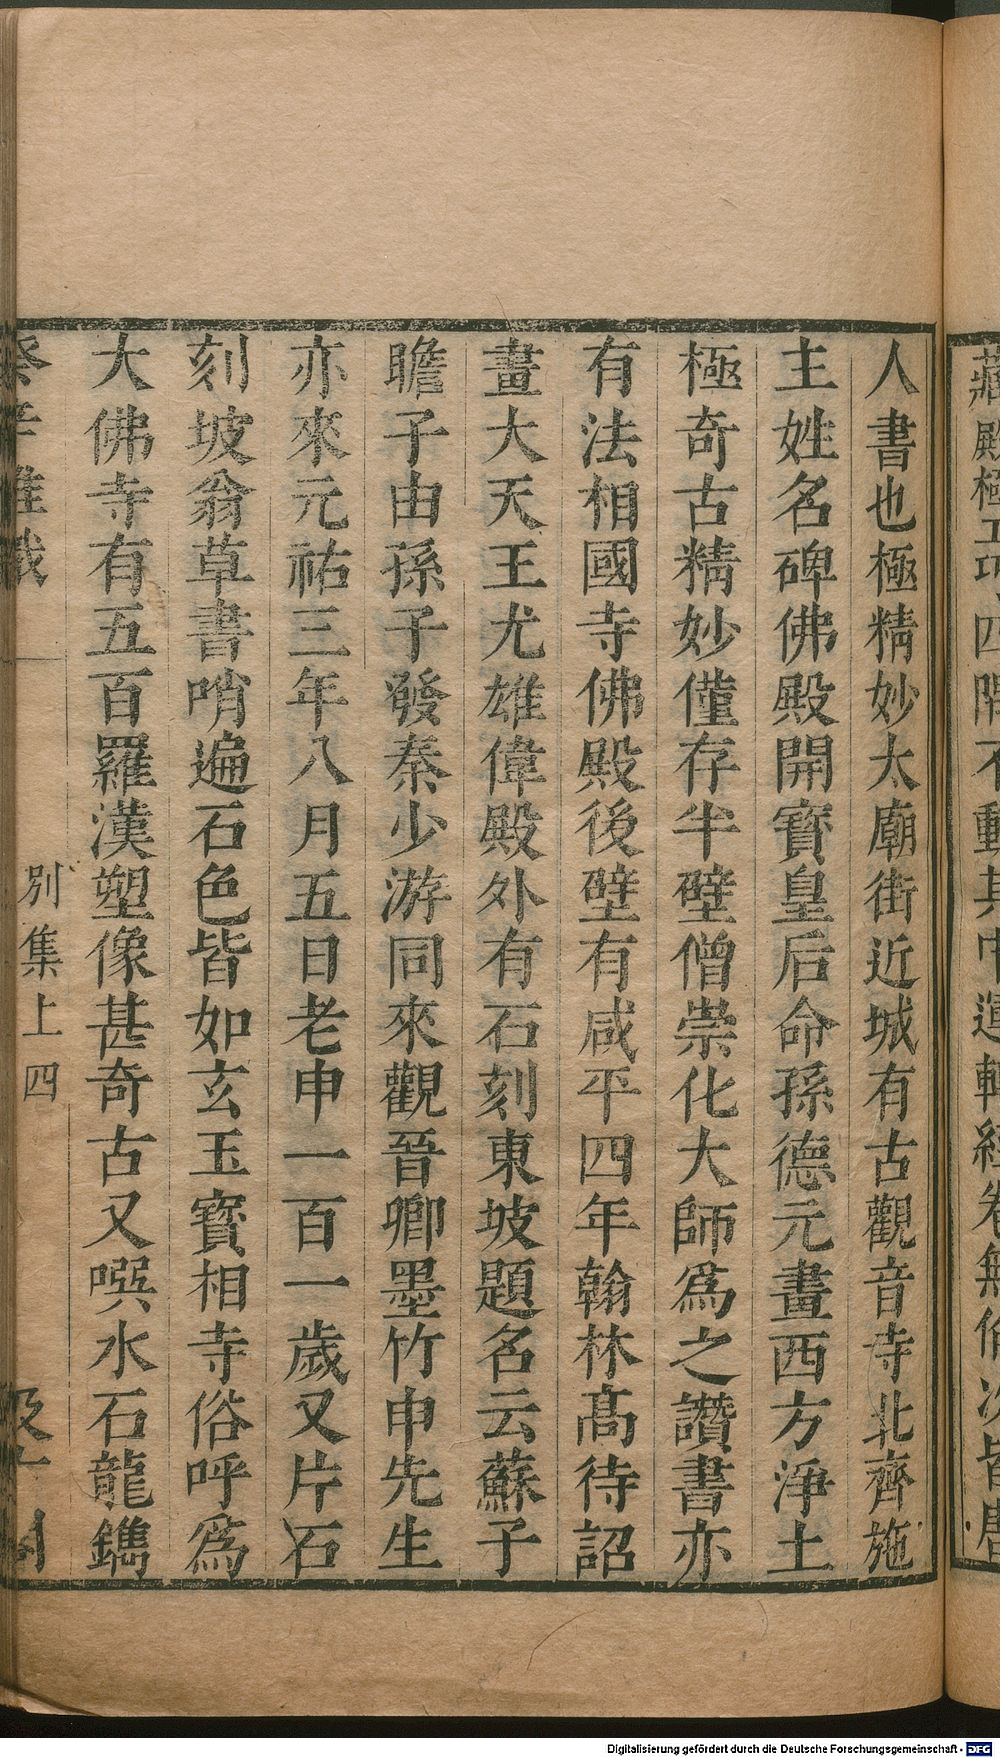 藏殿極工巧四隅不動其中運轉經卷無倫次皆唐
人書也極精妙太廟街近城有古觀音寺北齊施
主姓名碑佛殿開寶皇后命孫德元畫西方淨土
極奇古精妙僅存半壁僧崇化大師爲之讚書亦
有法相國寺佛殿後壁有咸平四年翰林高待詔
畫大天王尤雄偉殿外有石刻東坡題名云蘇子
瞻子由孫子發秦少游同來觀晉卿墨竹申先生
亦來元祐三年八月五日老申一百一歲又片石
刻坡翁草書哨遍石色皆如玄玉寶相寺俗呼爲
大佛寺有五百羅漢塑像甚奇古又噀水石龍鐫
癸辛雜識
別集上四
汲古閣
Digitalisierung gefördert durch die Deutsche Forschungsgemeinschaft - DFG